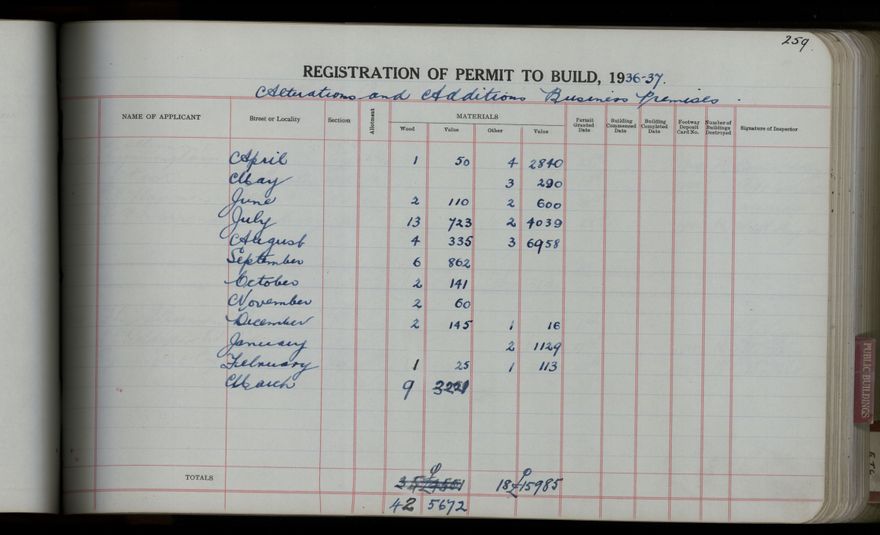 259.
REGISTRATION OF PERMIT TO BUILD, 1936-37.
Alterations and Additions Business Premises.
NAME OF APPLICANT Street or Locality Section Allotment MATERIALS Permit Granted Date Building Commenced Date Building Completed Date Footway Deposit Card No. Number of Buildings Destroyed Signature of Inspector
Wood Value Other Value
April 1 50 4 2840
May 3 290
June 2 110 2 600
July 13 723 2 4039
August 4 335 3 6958
September 6 862
October 2 141
November 2 60
December 2 145 1 16
January 2 1129
February 1 25 1 113
March 9 3221
TOTALS 18 £15985
42 5672
PUBLIC BUILDINGS
ETC